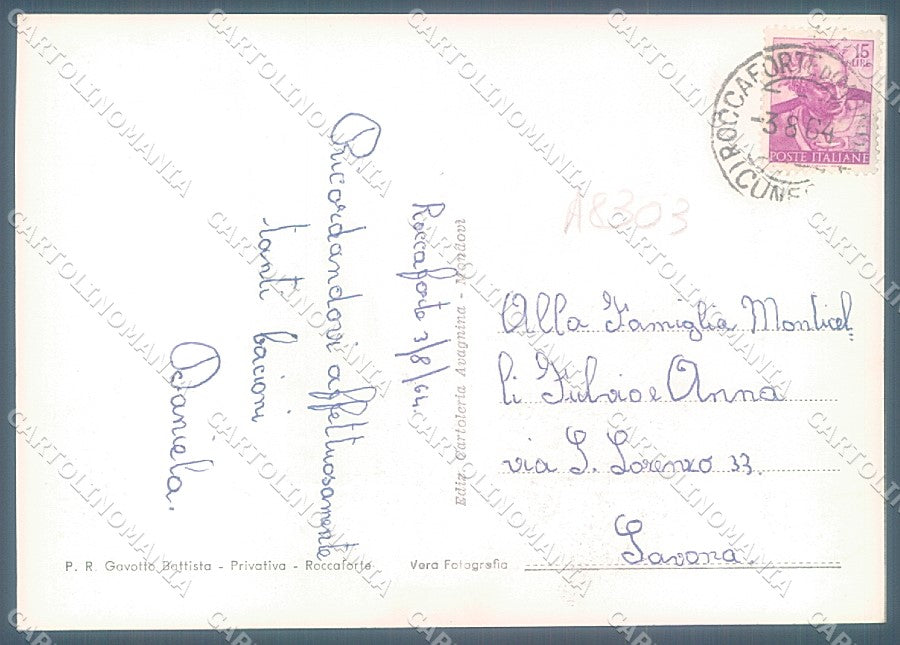 Roccaforte 3/8/64.
Ricordandovi affettuosamente
tanti bacioni
Daniela.
Ediz. Cartoleria Avagnina - Mondovì
P. R. Gavotto Battista - Privativa - Roccaforte
Vera Fotografia
15
LIRE
POSTE ITALIANE
ROCCAFORTE
-3 8 64
(CUNEO
A8303
Alla Famiglia Monticel
li Fulvio e Anna
via S. Lorenzo 33.
Savona.
CARTOLINOMANIA